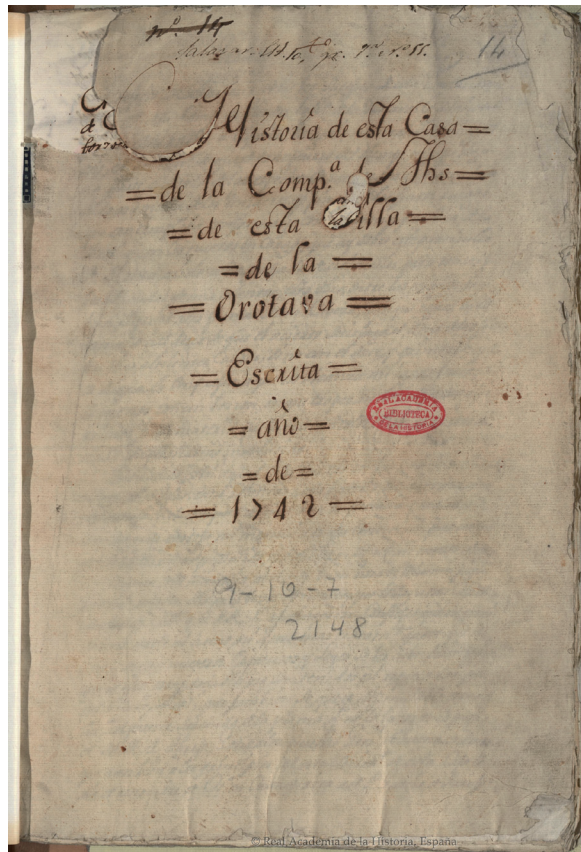 nº. 14
14
Historia de esta Casa =
= de la Comp.ª de Jhs =
= de esta Villa =
= de la =
= Orotava =
= Escrita =
= año =
= de =
= 1742 =
REAL ACADEMIA
BIBLIOTECA
DE LA HISTORIA
9-10-7
2148
© Real Academia de la Historia, España